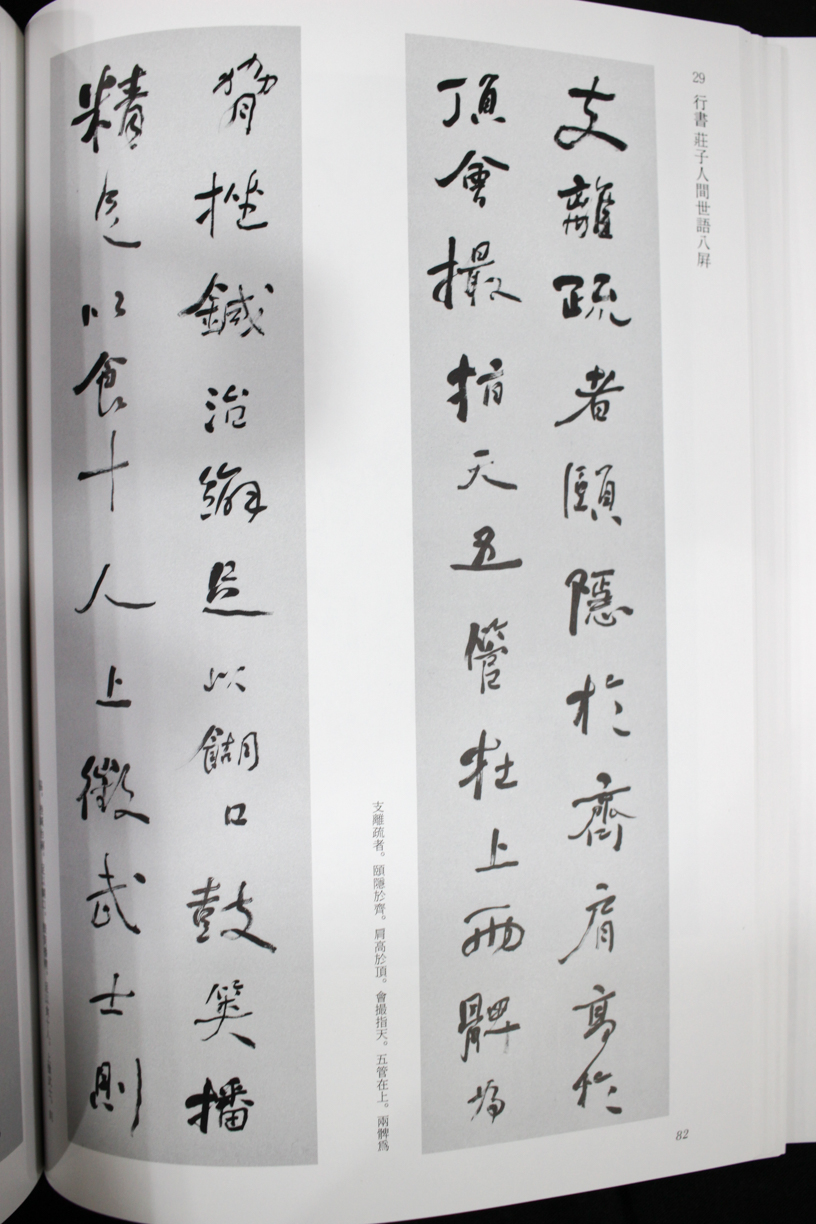 29 行書 莊子人間世語八屏
支離疏者頤隱於齊肩高於
頂會撮指天五管在上兩髀為
支離疏者。頤隱於齊。肩高於頂。會撮指天。五管在上。兩髀爲
脅挫鍼治繲足以餬口鼓筴播
精足以食十人上徵武士則
82